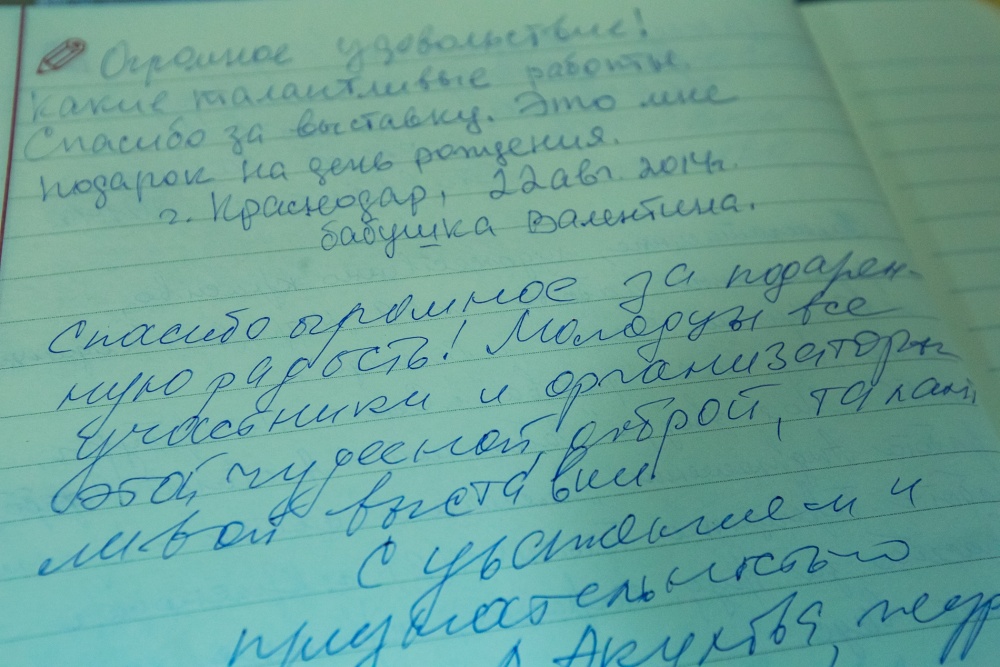 Огромное удовольствие!
Какие талантливые работы.
Спасибо за выставку. Это мне
подарок на день рождения.
г. Краснодар, 22 авг. 2014г.
бабушка Валентина.
Спасибо огромное за подарен-
ную радость! Молодцы все
участники и организаторы
этой чудесной, доброй, талант
ливой выставки!
С уважением и
признательностью